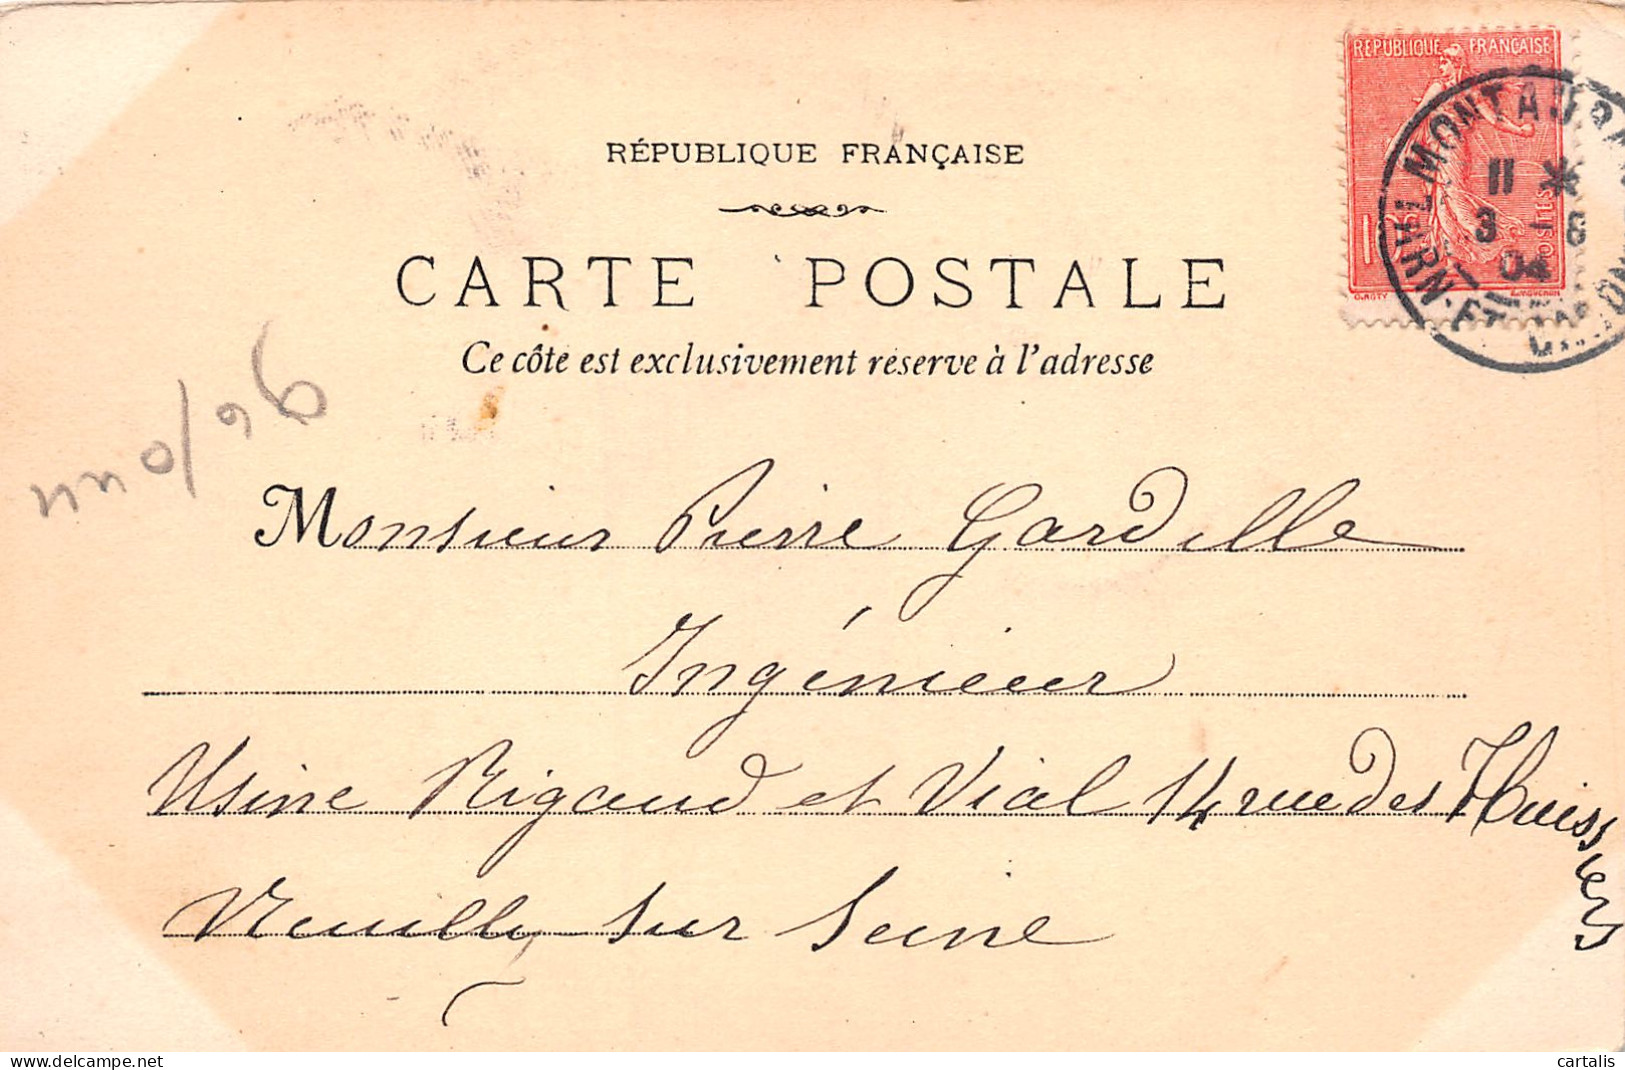 RÉPUBLIQUE FRANÇAISE
CARTE POSTALE
Ce côté est exclusivement réservé à l'adresse
REPUBLIQUE FRANÇAISE
10c
POSTES
O. ROTY
E. MOUCHON
MONTAUBAN
11 *
3 - 8
04
TARN-ET-GARONNE
Monsieur Pierre Gardelle
Ingénieur
Usine Rigaud et Vial 14 rue des Huissiers
Neuilly sur Seine
cartalis